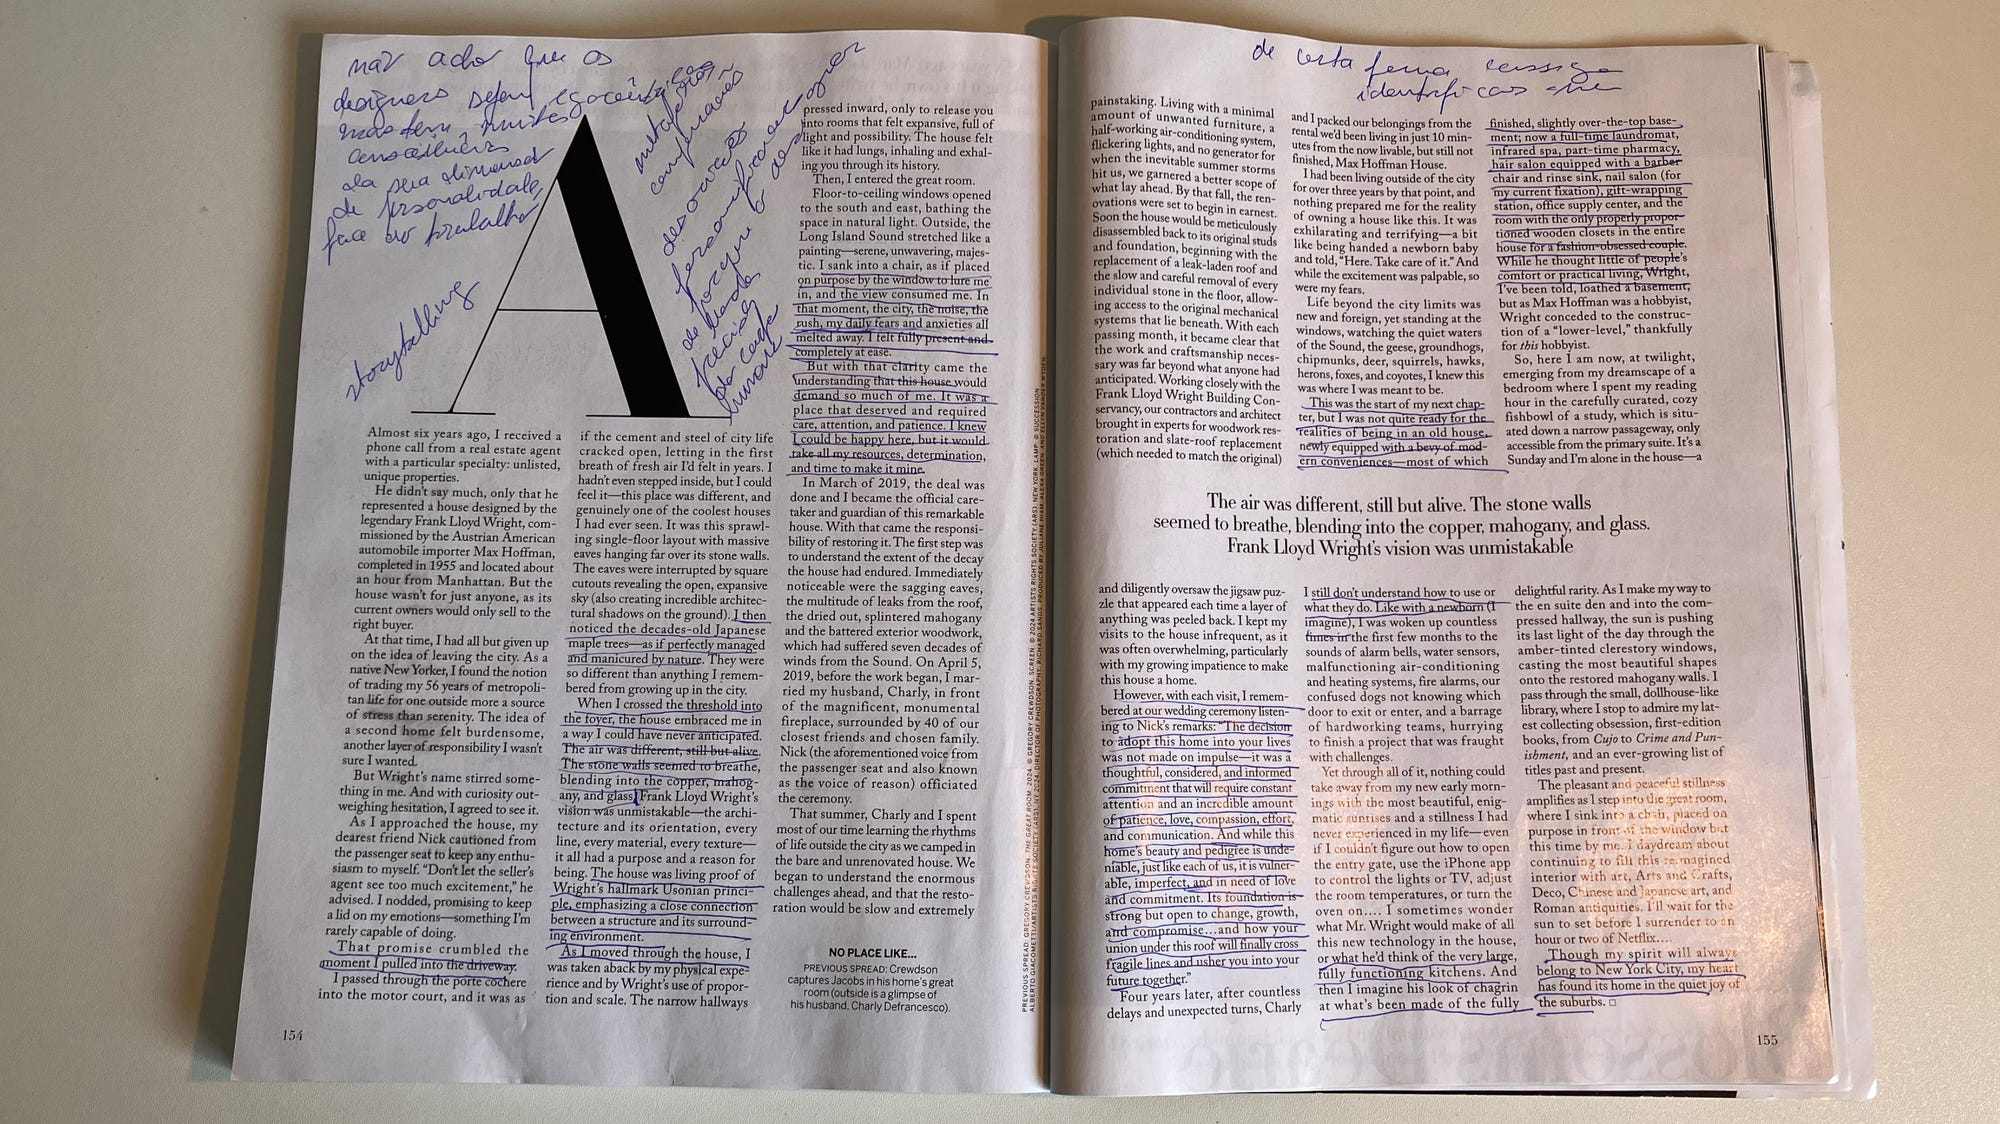 não acho que os
designers sejam egocêntricos
mas têm muitos
conscientes
da sua dimensão
de personalidade,
face ao trabalho,
storytelling
metáforas
comparações
porque o
A
Almost six years ago, I received a
phone call from a real estate agent
with a particular specialty: unlisted,
unique properties.
He didn't say much, only that he
represented a house designed by the
legendary Frank Lloyd Wright, com-
missioned by the Austrian American
automobile importer Max Hoffman,
completed in 1955 and located about
an hour from Manhattan. But the
house wasn't for just anyone, as its
current owners would only sell to the
right buyer.
At that time, I had all but given up
on the idea of leaving the city. As a
native New Yorker, I found the notion
of trading my 56 years of metropoli-
tan life for one outside more a source
of stress than serenity. The idea of
a second home felt burdensome,
another layer of responsibility I wasn't
sure I wanted.
But Wright's name stirred some-
thing in me. And with curiosity out-
weighing hesitation, I agreed to see it.
As I approached the house, my
dearest friend Nick cautioned from
the passenger seat to keep any enthu-
siasm to myself. "Don't let the seller's
agent see too much excitement," he
advised. I nodded, promising to keep
a lid on my emotions—something I'm
rarely capable of doing.
That promise crumbled the
moment I pulled into the driveway.
I passed through the porte cochere
into the motor court, and it was as
if the cement and steel of city life
cracked open, letting in the first
breath of fresh air I'd felt in years. I
hadn't even stepped inside, but I could
feel it—this place was different, and
genuinely one of the coolest houses
I had ever seen. It was this sprawl-
ing single-floor layout with massive
eaves hanging far over its stone walls.
The eaves were interrupted by square
cutouts revealing the open, expansive
sky (also creating incredible architec-
tural shadows on the ground). I then
noticed the decades-old Japanese
maple trees—as if perfectly managed
and manicured by nature. They were
so different than anything I remem-
bered from growing up in the city.
When I crossed the threshold into
the foyer, the house embraced me in
a way I could have never anticipated.
The air was different, still but alive.
The stone walls seemed to breathe,
blending into the copper, mahog-
any, and glass. Frank Lloyd Wright's
vision was unmistakable—the archi-
tecture and its orientation, every
line, every material, every texture—
it all had a purpose and a reason for
being. The house was living proof of
Wright's hallmark Usonian princi-
ple, emphasizing a close connection
between a structure and its surround-
ing environment.
As I moved through the house, I
was taken aback by my physical expe-
rience and by Wright's use of propor-
tion and scale. The narrow hallways
pressed inward, only to release you
into rooms that felt expansive, full of
light and possibility. The house felt
like it had lungs, inhaling and exhal-
ing you through its history.
Then, I entered the great room.
Floor-to-ceiling windows opened
to the south and east, bathing the
space in natural light. Outside, the
Long Island Sound stretched like a
painting—serene, unwavering, majes-
tic. I sank into a chair, as if placed
on purpose by the window to lure me
in, and the view consumed me. In
that moment, the city, the noise, the
rush, my daily fears and anxieties all
melted away. I felt fully present and
completely at ease.
But with that clarity came the
understanding that this house would
demand so much of me. It was a
place that deserved and required
care, attention, and patience. I knew
I could be happy here, but it would
take all my resources, determination,
and time to make it mine.
In March of 2019, the deal was
done and I became the official care-
taker and guardian of this remarkable
house. With that came the responsi-
bility of restoring it. The first step was
to understand the extent of the decay
the house had endured. Immediately
noticeable were the sagging eaves,
the multitude of leaks from the roof,
the dried out, splintered mahogany
and the battered exterior woodwork,
which had suffered seven decades of
winds from the Sound. On April 5,
2019, before the work began, I mar-
ried my husband, Charly, in front
of the magnificent, monumental
fireplace, surrounded by 40 of our
closest friends and chosen family.
Nick (the aforementioned voice from
the passenger seat and also known
as the voice of reason) officiated
the ceremony.
That summer, Charly and I spent
most of our time learning the rhythms
of life outside the city as we camped in
the bare and unrenovated house. We
began to understand the enormous
challenges ahead, and that the resto-
ration would be slow and extremely
NO PLACE LIKE...
PREVIOUS SPREAD: Crewdson
captures Jacobs in his home's great
room (outside is a glimpse of
his husband, Charly Defrancesco).
154
PREVIOUS SPREAD: GREGORY CREWDSON, THE GREAT ROOM, 2024. © GREGORY CREWDSON. SCREEN: © 2024 ARTISTS RIGHTS SOCIETY (ARS), NEW YORK. LAMP: © SUCCESSION
ALBERTO GIACOMETTI/ARTISTS RIGHTS SOCIETY (ARS), NY 2024. DIRECTOR OF PHOTOGRAPHY: RICHARD SANDS. PRODUCED BY JULIANE HIAM, ALEXA GREEN, AND ELLYN VANDER WYDEN.
de certa forma consigo
identificar-me
painstaking. Living with a minimal
amount of unwanted furniture, a
half-working air-conditioning system,
flickering lights, and no generator for
when the inevitable summer storms
hit us, we garnered a better scope of
what lay ahead. By that fall, the ren-
ovations were set to begin in earnest.
Soon the house would be meticulously
disassembled back to its original studs
and foundation, beginning with the
replacement of a leak-laden roof and
the slow and careful removal of every
individual stone in the floor, allow-
ing access to the original mechanical
systems that lie beneath. With each
passing month, it became clear that
the work and craftsmanship neces-
sary was far beyond what anyone had
anticipated. Working closely with the
Frank Lloyd Wright Building Con-
servancy, our contractors and architect
brought in experts for woodwork res-
toration and slate-roof replacement
(which needed to match the original)
and I packed our belongings from the
rental we'd been living in just 10 min-
utes from the now livable, but still not
finished, Max Hoffman House.
I had been living outside of the city
for over three years by that point, and
nothing prepared me for the reality
of owning a house like this. It was
exhilarating and terrifying—a bit
like being handed a newborn baby
and told, "Here. Take care of it." And
while the excitement was palpable, so
were my fears.
Life beyond the city limits was
new and foreign, yet standing at the
windows, watching the quiet waters
of the Sound, the geese, groundhogs,
chipmunks, deer, squirrels, hawks,
herons, foxes, and coyotes, I knew this
was where I was meant to be.
This was the start of my next chap-
ter, but I was not quite ready for the
realities of being in an old house,
newly equipped with a bevy of mod-
ern conveniences—most of which
finished, slightly over-the-top base-
ment; now a full-time laundromat,
infrared spa, part-time pharmacy,
hair salon equipped with a barber
chair and rinse sink, nail salon (for
my current fixation), gift-wrapping
station, office supply center, and the
room with the only properly propor-
tioned wooden closets in the entire
house for a fashion-obsessed couple.
While he thought little of people's
comfort or practical living, Wright,
I've been told, loathed a basement,
but as Max Hoffman was a hobbyist,
Wright conceded to the construc-
tion of a "lower-level," thankfully
for this hobbyist.
So, here I am now, at twilight,
emerging from my dreamscape of a
bedroom where I spent my reading
hour in the carefully curated, cozy
fishbowl of a study, which is situ-
ated down a narrow passageway, only
accessible from the primary suite. It's a
Sunday and I'm alone in the house—a
The air was different, still but alive. The stone walls
seemed to breathe, blending into the copper, mahogany, and glass.
Frank Lloyd Wright's vision was unmistakable
and diligently oversaw the jigsaw puz-
zle that appeared each time a layer of
anything was peeled back. I kept my
visits to the house infrequent, as it
was often overwhelming, particularly
with my growing impatience to make
this house a home.
However, with each visit, I remem-
bered at our wedding ceremony listen-
ing to Nick's remarks: "The decision
to adopt this home into your lives
was not made on impulse—it was a
thoughtful, considered, and informed
commitment that will require constant
attention and an incredible amount
of patience, love, compassion, effort,
and communication. And while this
home's beauty and pedigree is unde-
niable, just like each of us, it is vulner-
able, imperfect, and in need of love
and commitment. Its foundation is
strong but open to change, growth,
and compromise...and how your
union under this roof will finally cross
fragile lines and usher you into your
future together."
Four years later, after countless
delays and unexpected turns, Charly
I still don't understand how to use or
what they do. Like with a newborn (I
imagine), I was woken up countless
times in the first few months to the
sounds of alarm bells, water sensors,
malfunctioning air-conditioning
and heating systems, fire alarms, our
confused dogs not knowing which
door to exit or enter, and a barrage
of hardworking teams, hurrying
to finish a project that was fraught
with challenges.
Yet through all of it, nothing could
take away from my new early morn-
ings with the most beautiful, enig-
matic sunrises and a stillness I had
never experienced in my life—even
if I couldn't figure out how to open
the entry gate, use the iPhone app
to control the lights or TV, adjust
the room temperatures, or turn the
oven on.... I sometimes wonder
what Mr. Wright would make of all
this new technology in the house,
or what he'd think of the very large,
fully functioning kitchens. And
then I imagine his look of chagrin
at what's been made of the fully
delightful rarity. As I make my way to
the en suite den and into the com-
pressed hallway, the sun is pushing
its last light of the day through the
amber-tinted clerestory windows,
casting the most beautiful shapes
onto the restored mahogany walls. I
pass through the small, dollhouse-like
library, where I stop to admire my lat-
est collecting obsession, first-edition
books, from Cujo to Crime and Pun-
ishment, and an ever-growing list of
titles past and present.
The pleasant and peaceful stillness
amplifies as I step into the great room,
where I sink into a chair, placed on
purpose in front of the window but
this time by me. I daydream about
continuing to fill this reimagined
interior with art, Arts and Crafts,
Deco, Chinese and Japanese art, and
Roman antiquities. I'll wait for the
sun to set before I surrender to an
hour or two of Netflix....
Though my spirit will always
belong to New York City, my heart
has found its home in the quiet joy of
the suburbs.
155